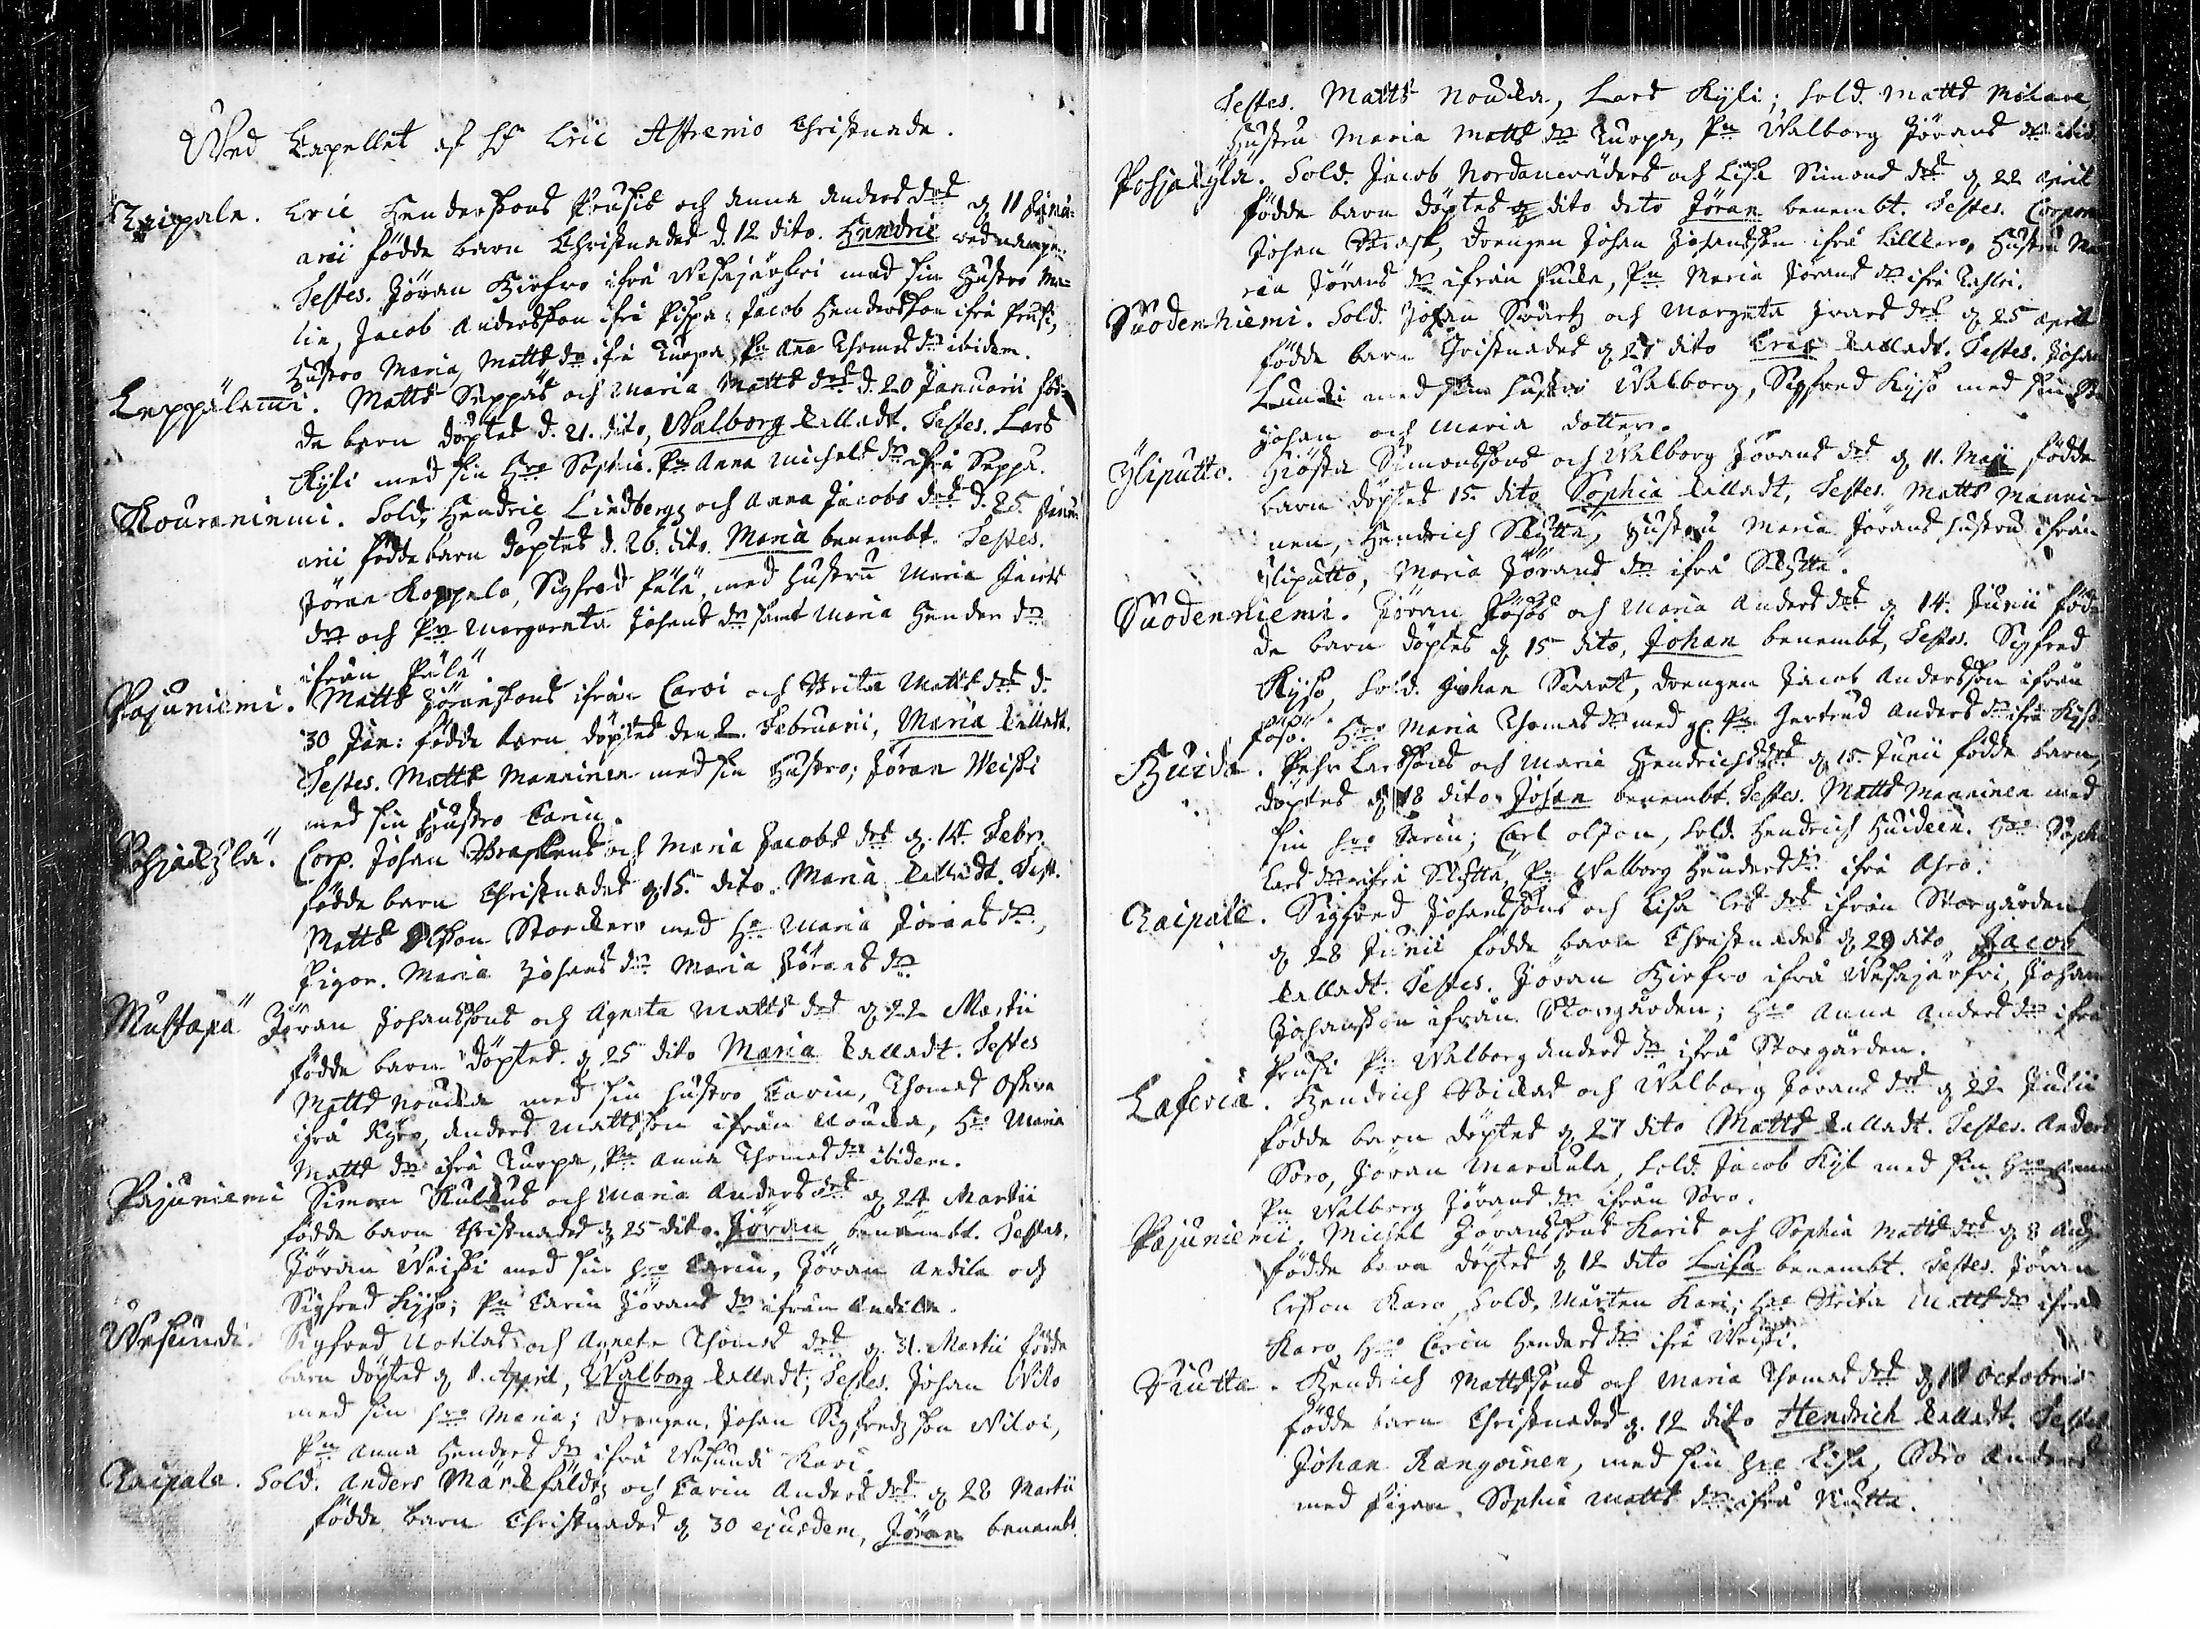 Wed Capellet af H Eric Astrenio Christnade.
Raipala. Eric Hendersons Prusis och Anna Anders drs d 11 Janu-
arii födde barn Christnades d. 12 dito. Hendric
Testes. Jöran Hirfvo ifrå Wesajärfvi med sin Hustro Ma-
lin, Jacob Andersson ifrå Pispa, Jacob Hendersson ifrå Prusi,
Hustro Maria Matts dr ifrå Turpa, Pn Anna Thomas dr ibidem.
Leppälami. Matts Seppäs och Maria Matts drs d. 20 Januarii föd-
de barn döptes d. 21. dito, Walborg kalladt. Testes. Lars
Kyli med sin Hro Sophia. Pn Anna Michels dr ifrå Seppä.
Kouraniemi. Sold. Hendric Lindbergz och Anna Jacobs drs d. 25. Janu-
arii födde barn döptes d. 26. dito. Maria benembt. Testes.
Jöran Koppelo, Sigfred Pälä, med Hustru Maria Jacobs
dr och Pn Margareta Johans dr samt Maria Henders dr
ifrån Pälä
Pajuniemi. Matts Jöranssons ifrån Caroi och Brita Matts drs d.
30 Jan: födde barn döptes den 2. Februarii, Maria kalladt.
Testes. Matts Manninen med sin Hustro; Jöran Weissi
med sin Hustro Carin.
Pohjakylä. Corp. Johan Braskens och Maria Jacobs drs d. 14. Febr.
födde barn Christnades d 15. dito. Maria kalladt. Test.
Matts Olsson Storkero med Ho Maria Jörans dr,
Pigor. Maria Johans dr Maria Jörans dr
Mustapä Jöran Johanssons och Agneta Matts drs d 22 Martii
födde barn döptes. d 25 dito Maria kalladt. Testes
Matts Noucka med sin Hustro Carin, Thomas
ifrå Kyso, Anders Mattsson ifrån Noucka, Hro Maria
Matts dr ifrå Turpa, Pn Anna Thomas dr ibidem.
Pajuniemi Simon Kulkus och Maria Anders drs d 24 Martii
födde barn Christnades d 25 dito. Jöran benembt. Testes.
Jöran Weissi med sin Hro Carin, Jöran Andila och
Sigfred Kyso; Pn Carin Jörans dr ifrån Andila.
Wesundi. Sigfred Uotilas och Agneta Thomas drs d. 31. Martii födde
barn döptes d 1. April, Walborg kalladt; Testes. Johan Wilo
med sin Hro Maria; Drengen Johan Sigfredz son Wiloi,
Pn Anna Henders dr ifrå Wesundi Kari.
Raipala. Sold. Anders Märkfäldz och Carin Anders drs d 28 Martii
födde barn Christnades d 30 ejusdem, Jöran benembt
Testes. Matts Noucka, Lars Kyli; Sold. Matts
Hustru Maria Matts dr Turpa, Pn Walborg Jörans dr ibid.
Pohjakylä. Sold. Jacob Nordanväders och Lisa Simons drs d 22 April
födde barn döptes d dito dito Jöran benembt. Testes. Corporal
Johan Brask, Drengen Johan Johansson ifrå Lillkero, Hustru Ma-
ria Jörans dr ifrån Pucka, Pn Maria Jörans dr ifrå
Suodenniemi. Sold. Johan Swartz och Margeta Ivars drs d 25 April
födde barn Christnades d 27 dito Eric kalladt. Testes. Johan
Lundi med sin Hustro Walborg, Sigfred Kyso med sin
Johan och Maria dotter.
Yliputto. Giösta Simonssons och Walborg Jörans drs d 11. Maji födde
barn döptes 15. dito Sophia kalladt, Testes. Matts Manni-
nen, Hendrich Slyttä, Hustru Maria Jörans hustru ifrån
Yliputto, Maria Jörans dr ifrå Slyttä.
Suodenniemi. Jöran Pösös och Maria Anders drs d 14. Junii föd-
de barn döptes d 15 dito, Johan benembt, Testes. Sigfred
Kyso, Sold. Johan Swart, Drengen Jacob Andersson ifrån
Pösö. Hro Maria Thomas dr med Pn Gertrud Anders dr ifrå Kyso.
Huida. Pehr Larssons och Maria Hendrichs drs d 15. Junii födde barn,
döptes d 18 dito Johan benembt. Testes. Matts Manninen med
sin Hro Carin; Carl Olsson, Sold. Hendrich Huideen. Hro Sophia
Lars dr ifrå Slyttä, Pn Walborg Henders dr ifrå Ahro.
Raipale. Sigfred Johanssons och Lisa Ers drs ifrån Storgården
d 28 Junii födde barn Christnades d 29 dito Jacob
kalladt. Testes. Jöran Hirfvo ifrå Wesajärfvi, Johan
Johansson ifrån Storgården; Hro Anna Anders dr ifrå
Prusi Pn Walborg Anders dr ifrå Storgården.
Laferia. Hendrich Soickas och Walborg Jörans drs d 22 Julii
födde barn döptes d 27 dito Matts kalladt. Testes. Anders
Soro, Jöran Marckula, Sold. Jacob Kyl med sin Hro Anna
Pn Walborg Jörans dr ifrån Soro.
Pajuniemi. Michel Jöranssons Karis och Sophia Matts drs d 8 Aug.
födde barn döptes d 12 dito Lisa benembt. Testes. Jöran
Ersson Karo, Sold. Mårten Kari; Hro Brita Matts dr ifrå
Karo, Hro Carin Henders dr ifrå Weissi.
Riutta. Hendrich Mattssons och Maria Thomas drs d 11 Octobris
födde barn Christnades d. 12 dito Hendrich kalladt. Testes
Johan Kangoinen, med sin Hro Lisa, Soro Anders
med Pigan Sophia Matts dr ifrå Riutta.